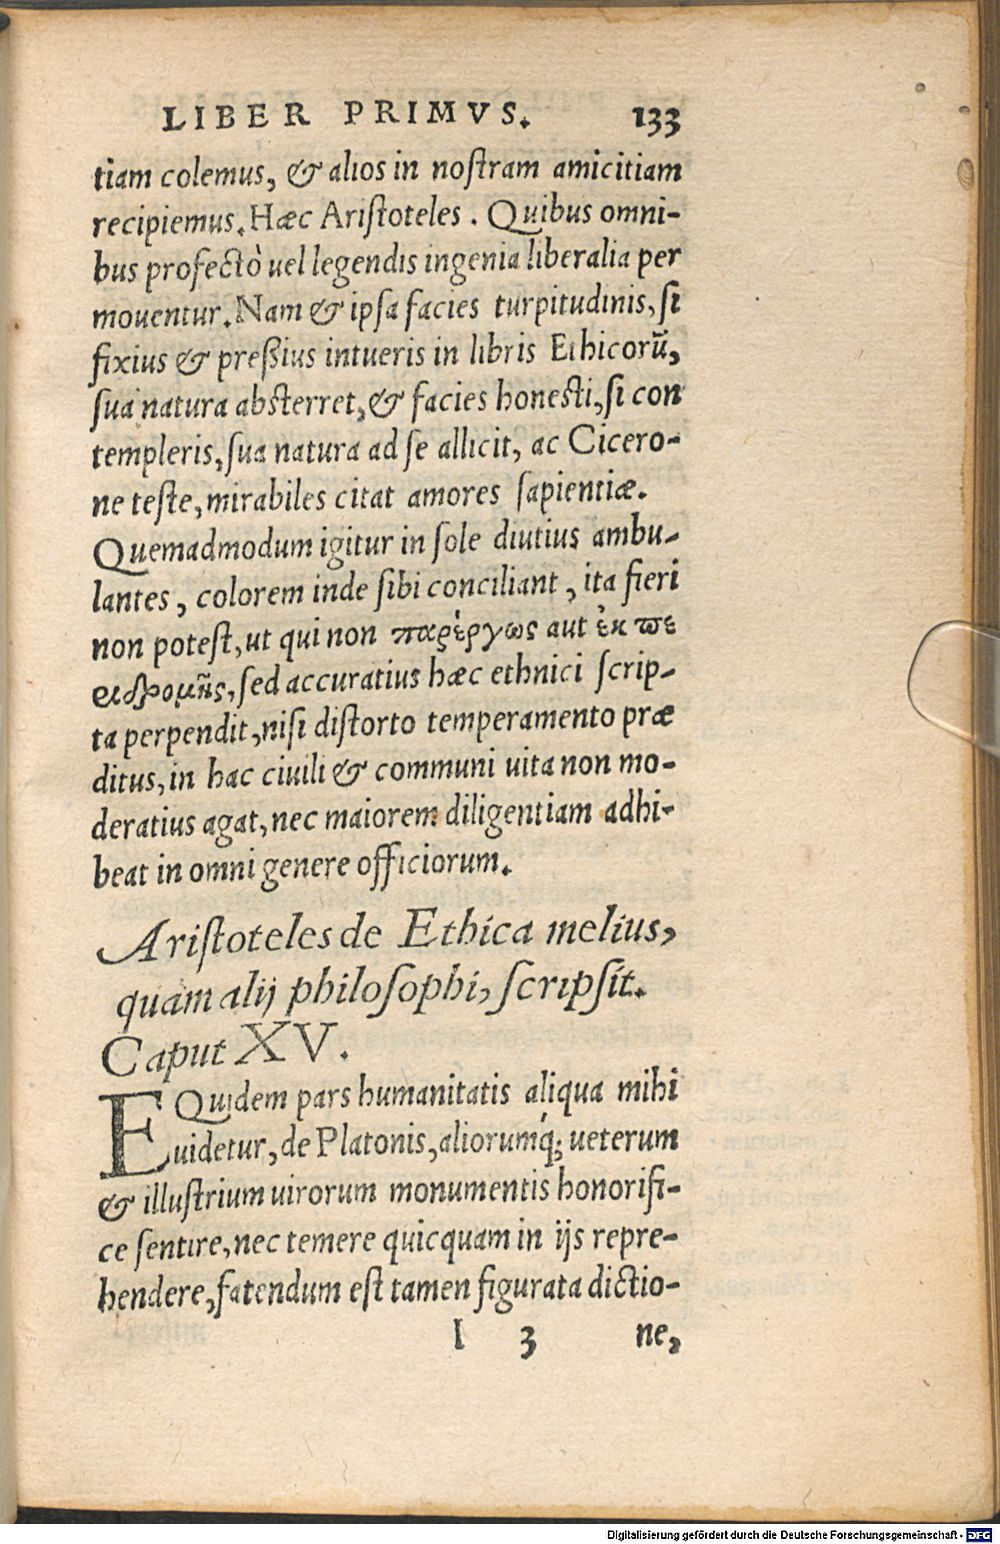 LIBER PRIMVS. 133
tiam colemus, & alios in noſtram amicitiam
recipiemus. Hæc Ariſtoteles. Quibus omni-
bus profectò uel legendis ingenia liberalia per
mouentur. Nam & ipſa facies turpitudinis, ſi
fixius & preßius intueris in libris Ethicorũ,
ſua natura abſterret, & facies honeſti, ſi con
templeris, ſua natura ad ſe allicit, ac Cicero-
ne teſte, mirabiles citat amores ſapientiæ.
Quemadmodum igitur in ſole diutius ambu-
lantes, colorem inde ſibi conciliant, ita fieri
non poteſt, ut qui non παρέργως aut ἐκ πε
ριδρομῆς, ſed accuratius hæc ethnici ſcrip-
ta perpendit, niſi diſtorto temperamento præ
ditus, in hac ciuili & communi uita non mo-
deratius agat, nec maiorem diligentiam adhi-
beat in omni genere officiorum.
Ariſtoteles de Ethica melius,
quam alij philoſophi, ſcripſit.
Caput XV.
EQuidem pars humanitatis aliqua mihi
uidetur, de Platonis, aliorumq́; ueterum
& illuſtrium uirorum monumentis honorifi-
ce ſentire, nec temere quicquam in ijs repre-
hendere, fatendum eſt tamen figurata dictio-
I 3 ne,
Digitalisierung gefördert durch die Deutsche Forschungsgemeinschaft - DFG